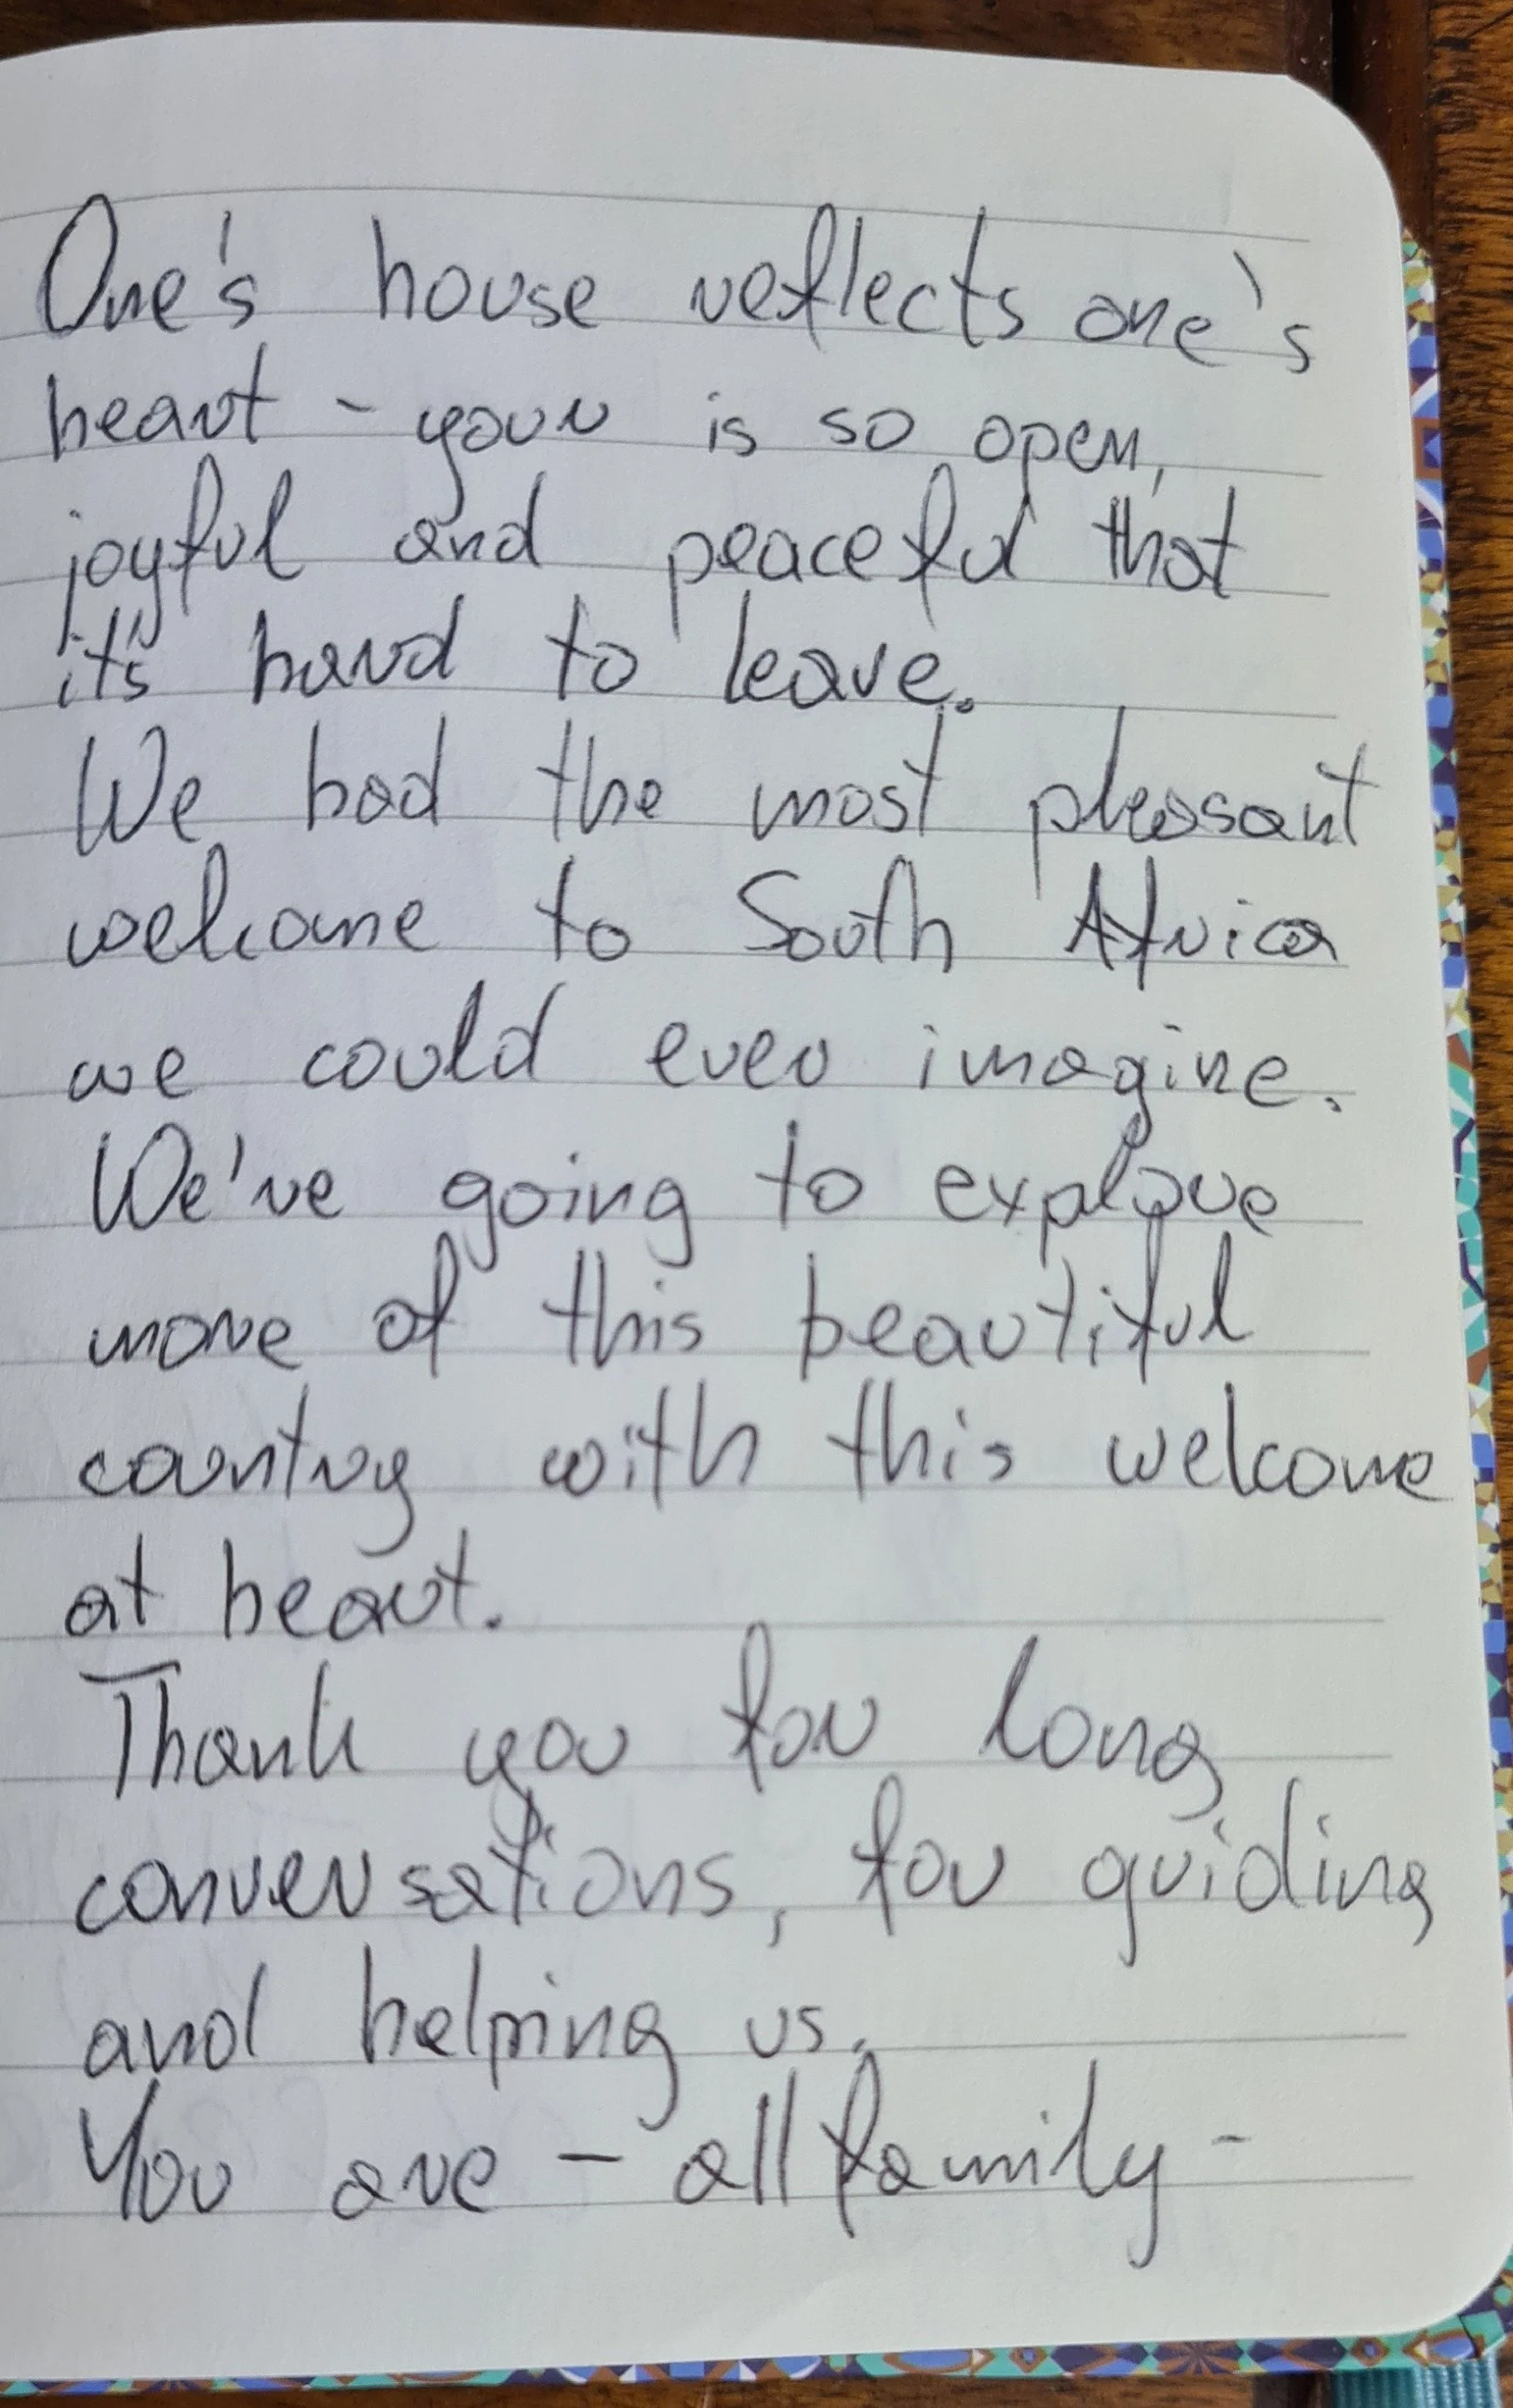 One's house reflects one's
heart - your is so open,
joyful and peaceful that
it's hard to leave.
We had the most pleasant
welcome to South Africa
we could ever imagine.
We're going to explore
more of this beautiful
country with this welcome
at heart.
Thank you for long
conversations, for guiding
and helping us.
You are - all family -